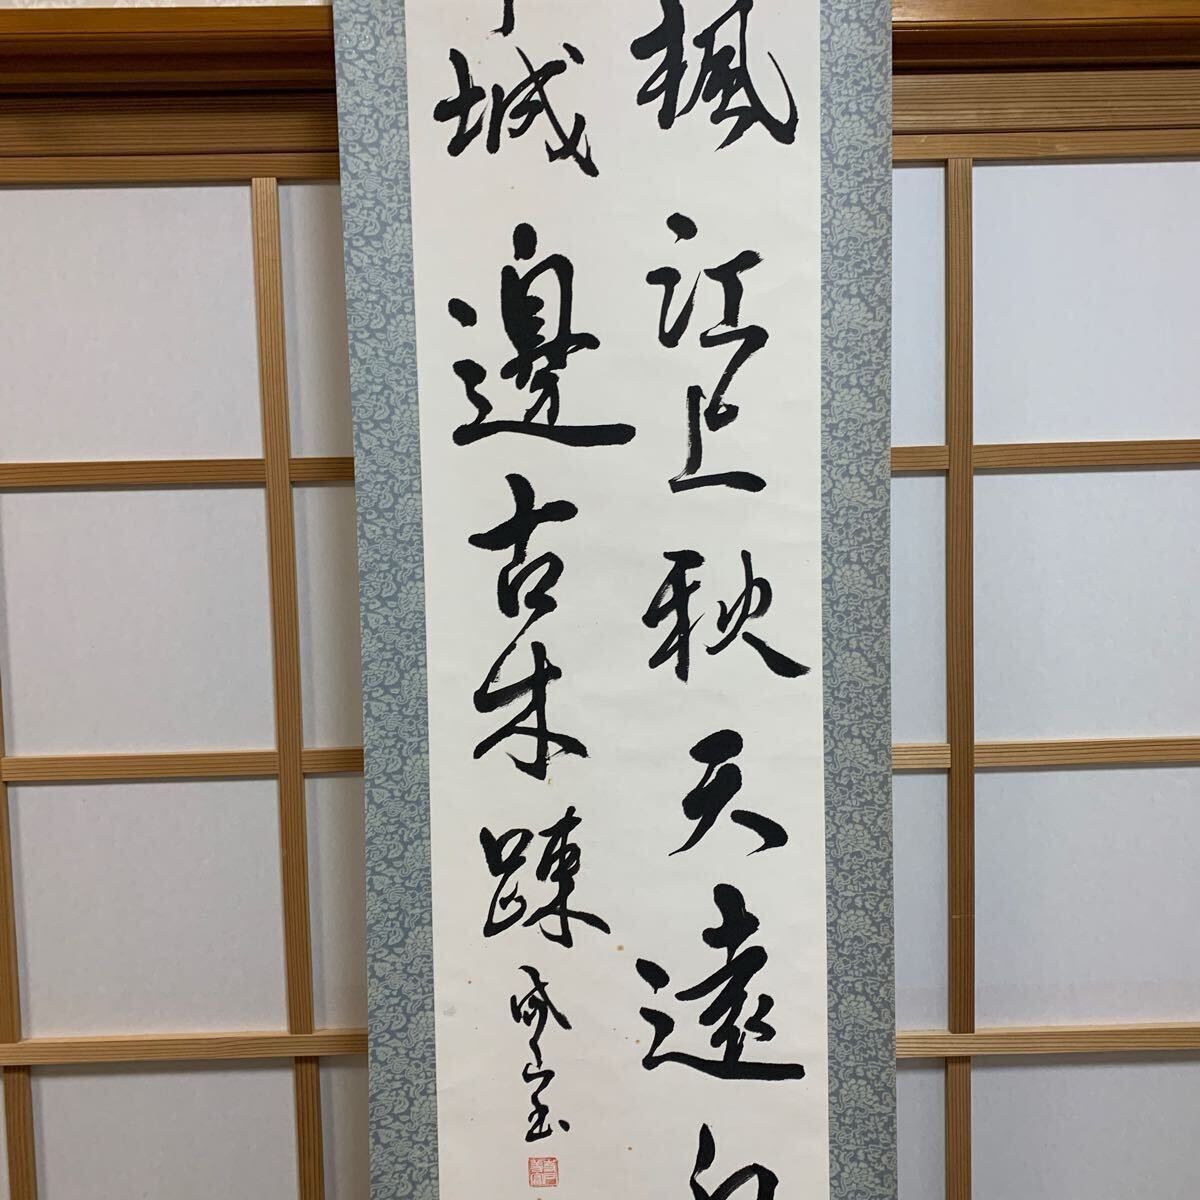 楓江上秋天遠白
城邊古木踈